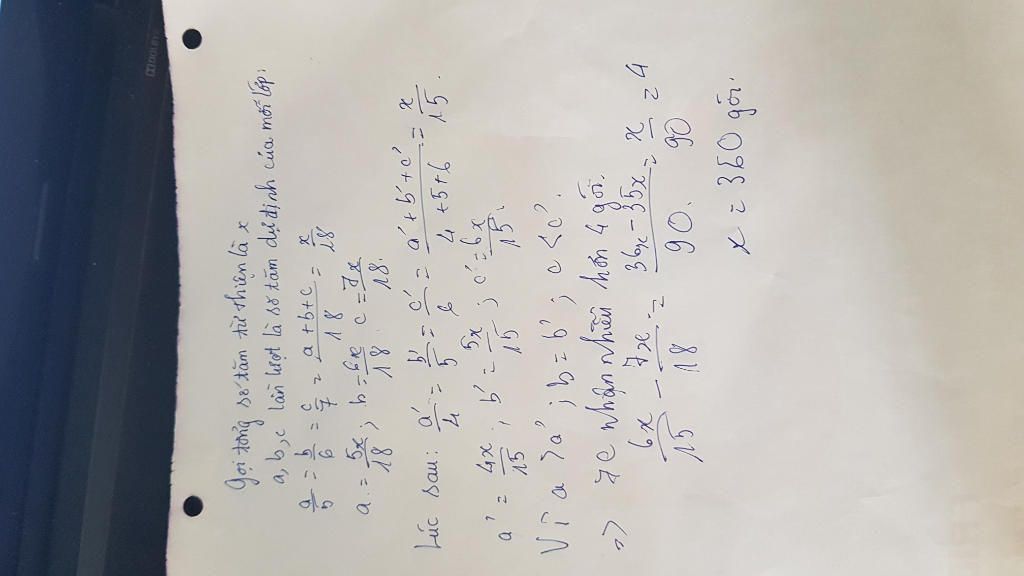 Gọi tổng số tăm từ thiện là x
a, b, c lần lượt là số tăm dự định của mỗi lớp:
a/5 = b/6 = c/7 = (a+b+c)/18 = x/18
a = 5x/18; b = 6x/18 c = 7x/18.
Lúc sau: a'/4 = b'/5 = c'/6 = (a'+b'+c')/(4+5+6) = x/15.
a' = 4x/15; b' = 5x/15; c' = 6x/15.
Vì a > a'; b = b'; c < c'.
=> 7C nhận nhiều hơn 4 gói.
6x/15 - 7x/18 = (36x - 35x)/90. = x/90 = 4
x = 360 gói.